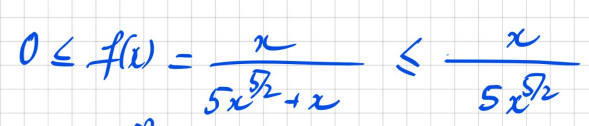 0 ≤ f(x) = x / (5x^{5/2} + x) ≤ x / (5x^{5/2})